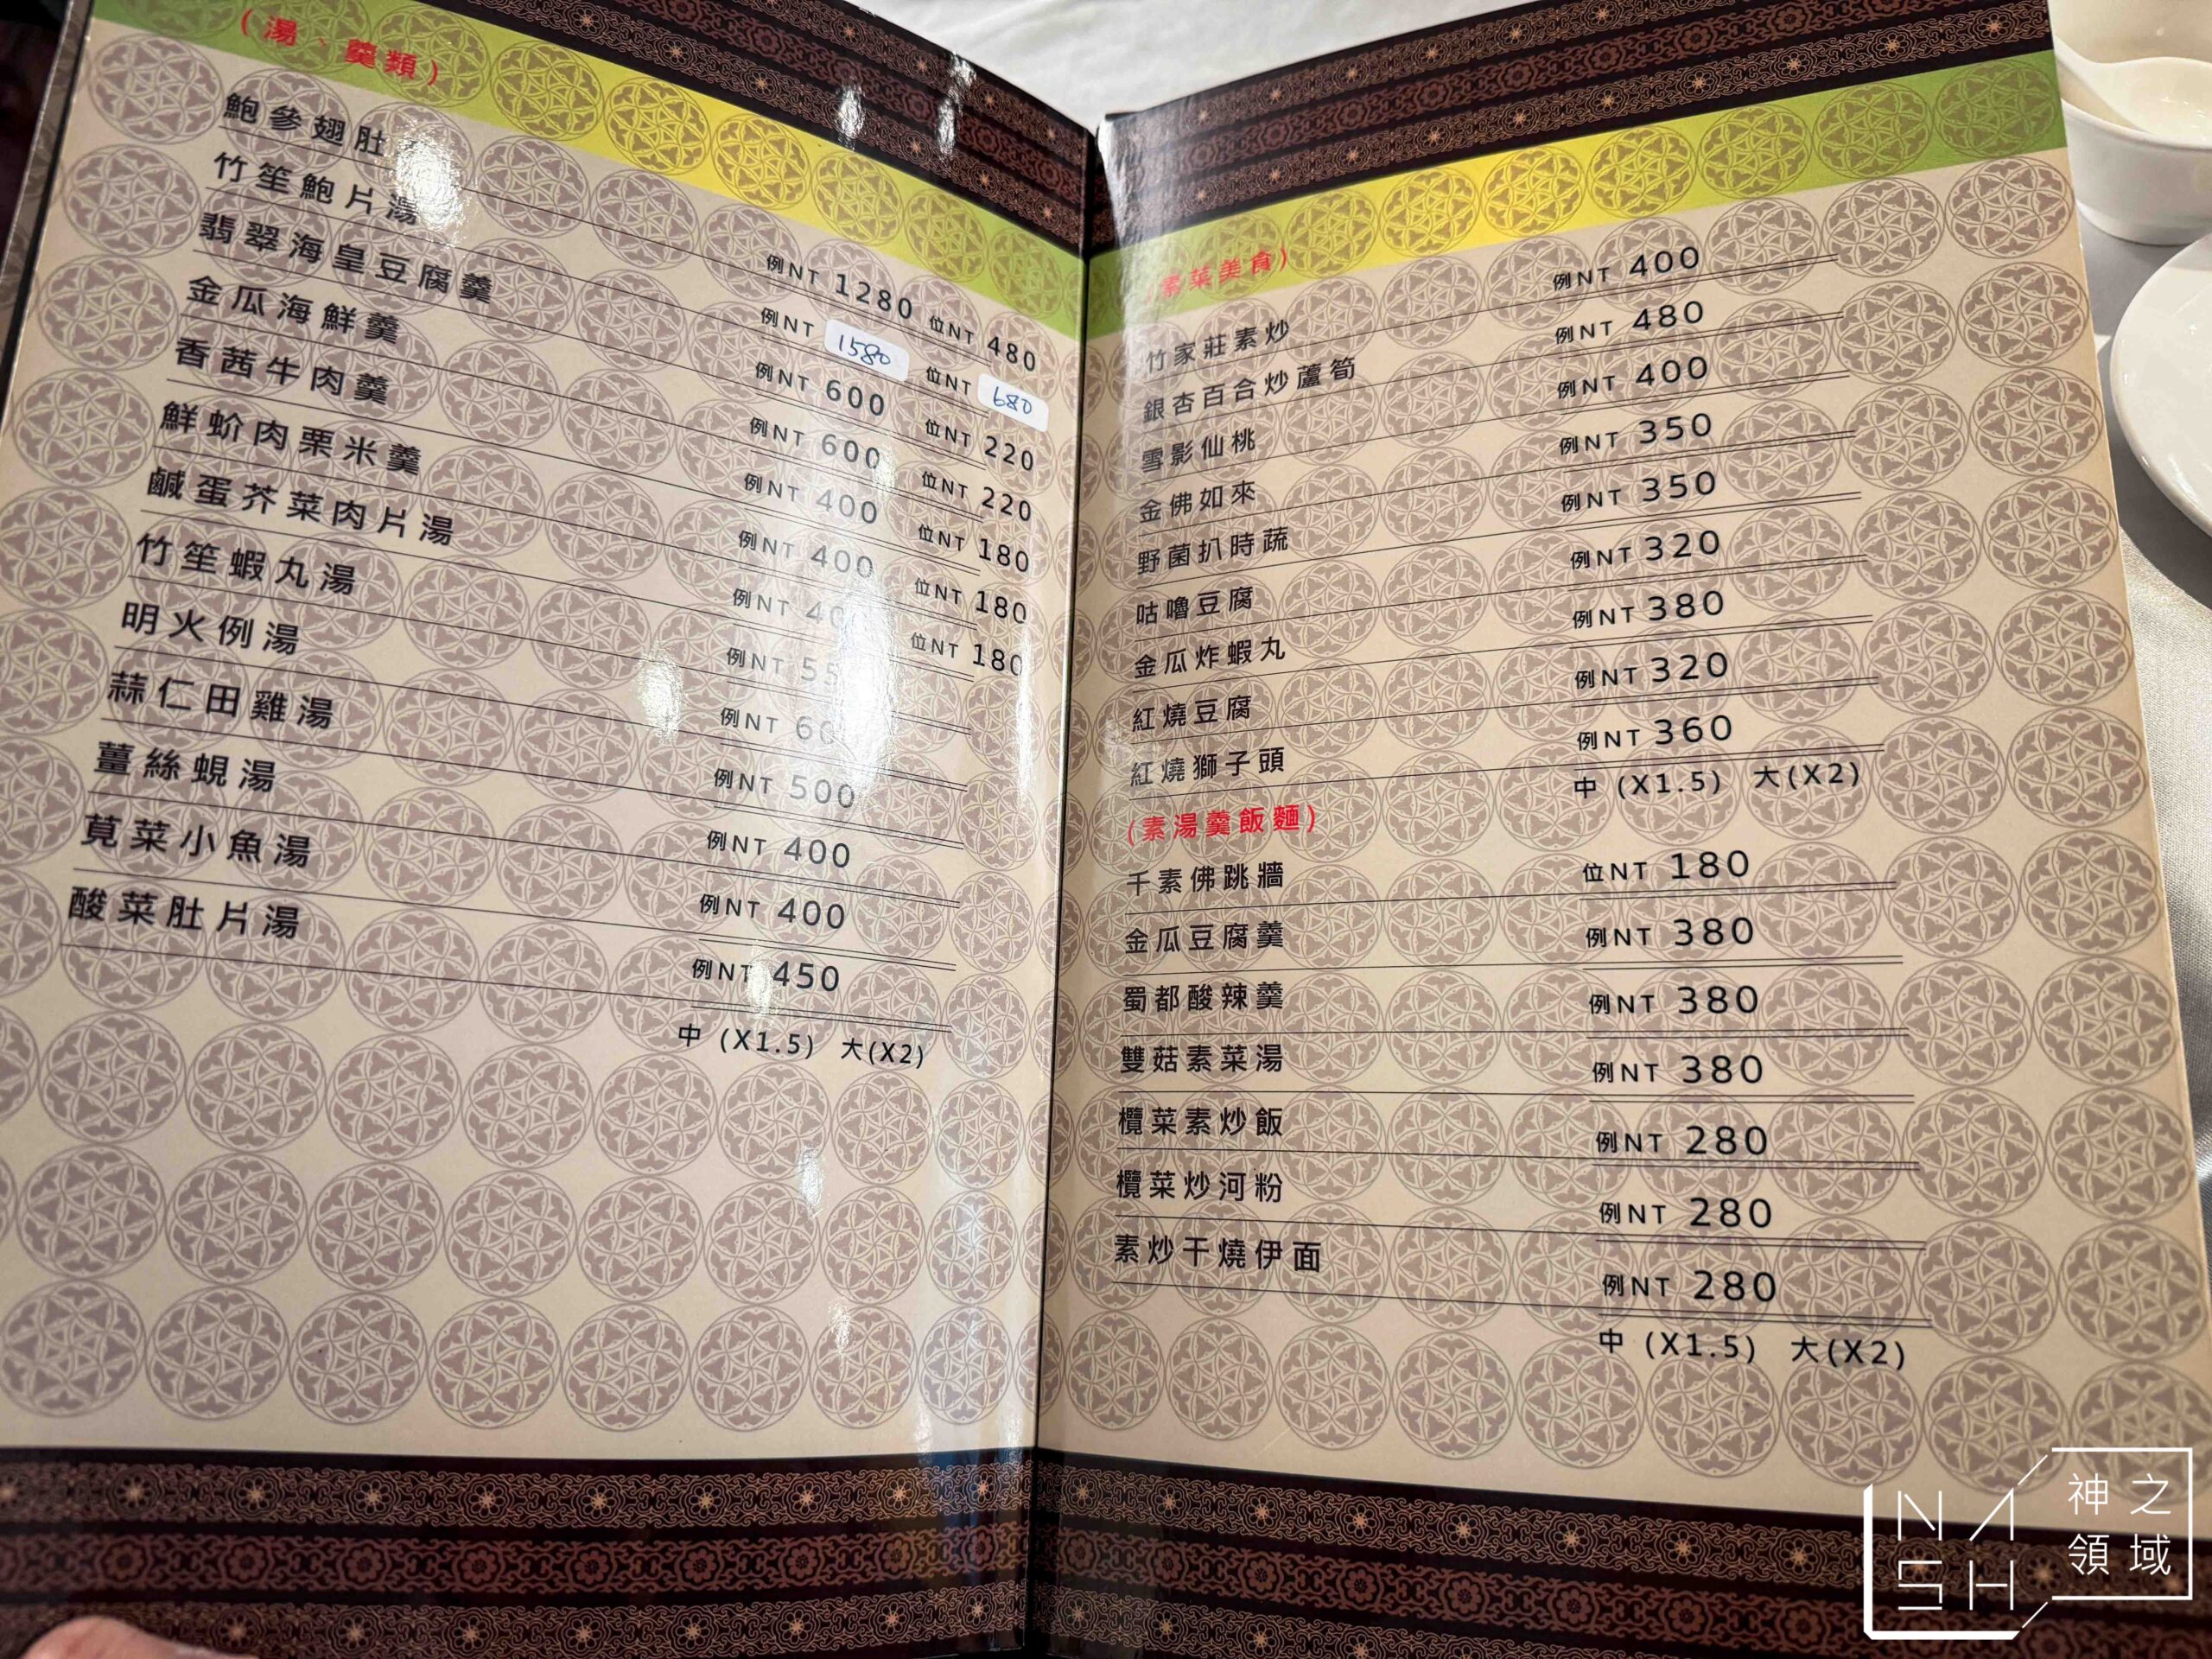 (湯、羹類)
鮑參翅肚 例NT 1280 位NT 480
竹笙鮑片湯 例NT 1580 位NT 680
翡翠海皇豆腐羹 例NT 600 位NT 220
金瓜海鮮羹 例NT 600 位NT 220
香茜牛肉羹 例NT 400 位NT 180
鮮蚧肉栗米羹 例NT 400 位NT 180
鹹蛋芥菜肉片湯 例NT 位NT 180
竹笙蝦丸湯 例NT
明火例湯 例NT
蒜仁田雞湯 例NT 500
薑絲蜆湯 例NT 400
莧菜小魚湯 例NT 400
酸菜肚片湯 例NT 450
中 (X1.5) 大(X2)
(素菜美食)
竹家莊素炒 例NT 400
銀杏百合炒蘆筍 例NT 480
雪影仙桃 例NT 400
金佛如來 例NT 350
野菌扒時蔬 例NT 350
咕嚕豆腐 例NT 320
金瓜炸蝦丸 例NT 380
紅燒豆腐 例NT 320
紅燒獅子頭 例NT 360
中 (X1.5) 大(X2)
(素湯羹飯麵)
千素佛跳牆 位NT 180
金瓜豆腐羹 例NT 380
蜀都酸辣羹 例NT 380
雙菇素菜湯 例NT 380
欖菜素炒飯 例NT 280
欖菜炒河粉 例NT 280
素炒干燒伊面 例NT 280
中 (X1.5) 大(X2)
NASH
神之領域